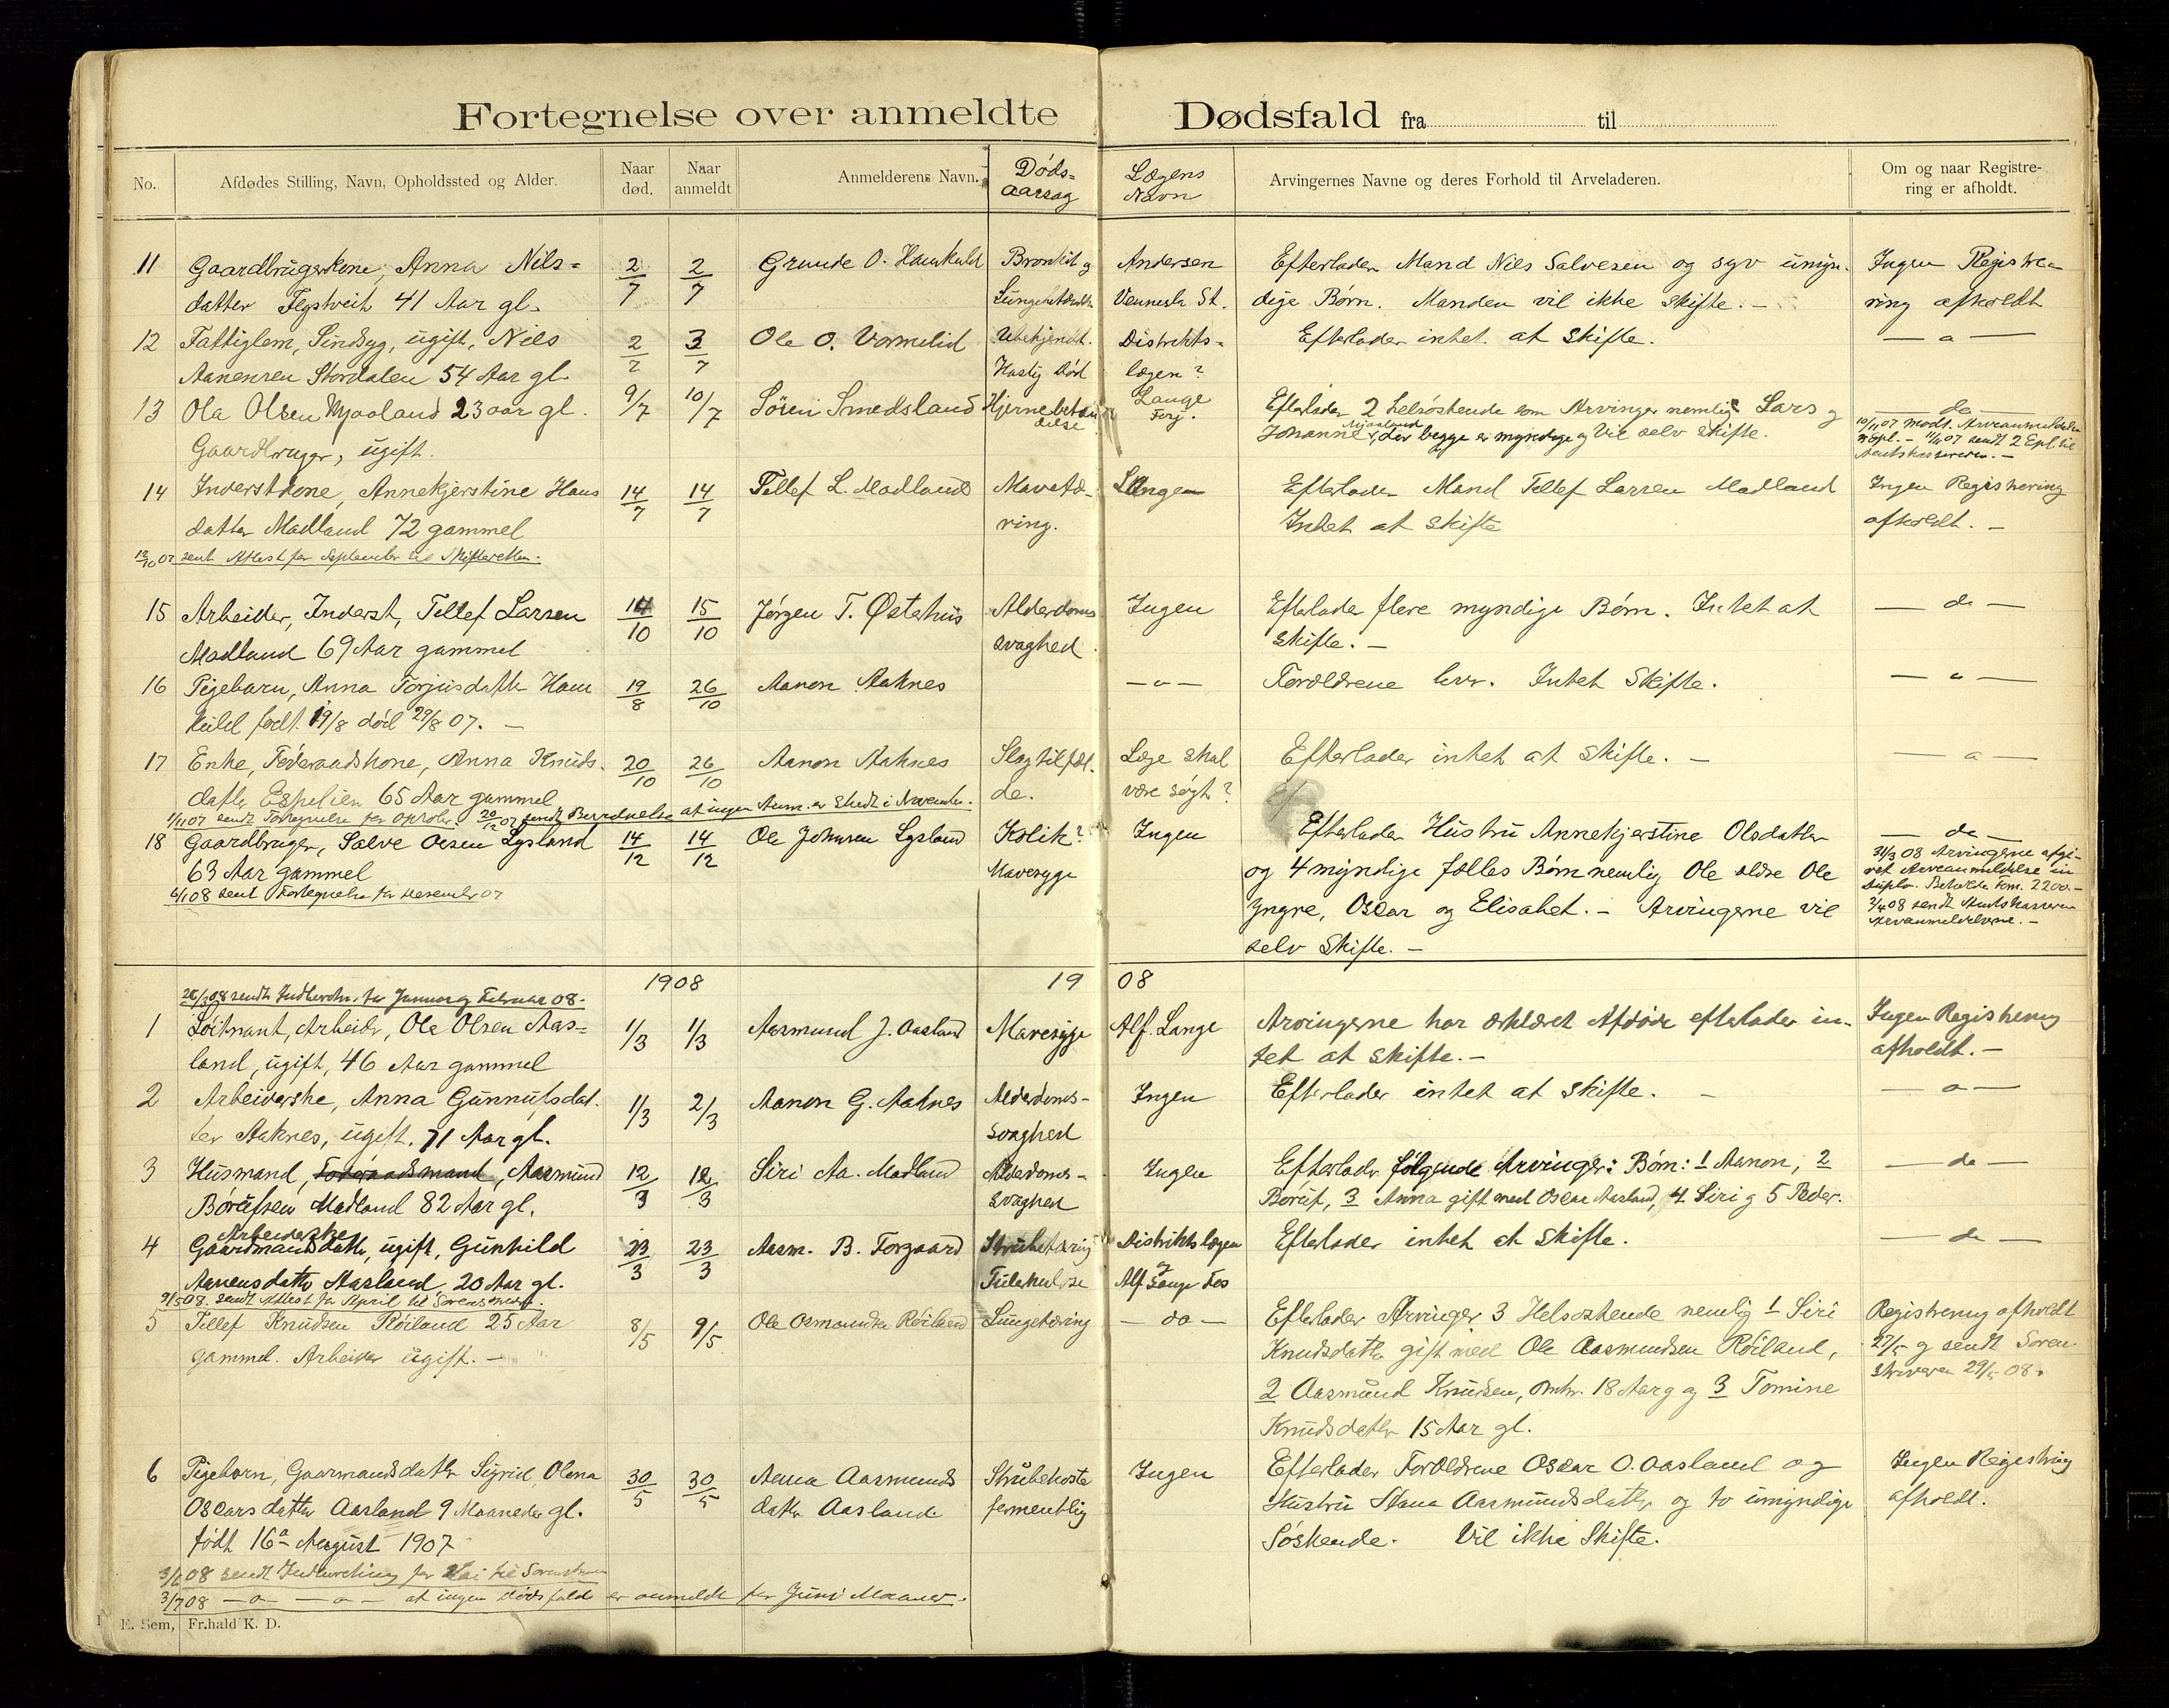 Fortegnelse over anmeldte Dødsfald fra til
No. Afdødes Stilling, Navn, Opholdssted og Alder. Naar død. Naar anmeldt Anmelderens Navn. Døds= aarsag Lægens Navn Arvingernes Navne og deres Forhold til Arveladeren. Om og naar Registrering er afholdt.
11 Gaardbrugerkone, Anna Nils= 2/7 2/7 Grunde O. Haukuld Bronkit og Andersen Efterlader Mand Nils Salvesen og syv umyn- Ingen Registre-
datter 41 Aar gl. Vennesla St. dige Børn. Manden vil ikke skifte. - ring afholdt
12 Fattiglem, Sindsyg, ugift, Nils 2/7 3/7 Ole O. Vormelid Ubekjendt. Distrikts= Efterlader intet at skifte. — a —
Aanensen Stordalen 54 Aar gl. Hastig Død lægen?
13 Ola Olsen Mjaaland 23 aar gl. 9/7 10/7 Søren Smedsland Hjernebetæn- Lange Efterlader 2 helsøskende som Arvinger nemlig Lars og — do —
delse Johanne Mjaaland, der begge er myndige og vil selv skifte. 10/11 07 modt. Arveanmeldelse
Gaardbruger, ugift. Expl. - 11/11 07 sendt 2 Expl. til
Amtskasereren. -
14 Inderstkone, Annekjerstine Hans 14/7 14/7 Tellef L. Madland Mavetæ- Efterlader Mand Tellef Larsen Madland Ingen Registrering
datter Madland 72 gammel ring. Intet at skifte afholdt. -
12/10 07 sent Attest for September til Skifteretten.
15 Arbeider, Inderst, Tellef Larsen 14/10 15/10 Jørgen T. Østerhus Alderdoms Ingen Efterlader flere myndige Børn. Intet at — do —
Madland 69 Aar gammel svaghed. skifte. -
16 Pigebarn, Anna Torjusdatter Hau 19/8 26/10 Aanon Aaknes — o — Forældrene lever. Intet Skifte. — a —
kuld født 19/8 død 29/8 07. -
17 Enke, Føderaadskone, Anna Knuds. 20/10 26/10 Aanon Aaknes Slagtilfæl- Læge skal Efterlader intet at skifte. - — a —
datter Espelien 65 Aar gammel de. være søgt?
1/11 07 sendt Fortegnelse for Oktober. 20/12 07 sendt Berednelse at ingen Anm. er skedt i November.
18 Gaardbruger, Salve Olsen Lysland 14/12 14/12 Ole Johnsen Lysland Kolik? Ingen Efterlader Hustru Annekjerstine Olsdatter — do —
63 Aar gammel Mavesyge og 4 myndige fælles Børn nemlig Ole eldre Ole 31/3 08 Arvingerne afgi-
vet Arveanmeldelse in
6/1 08 sent Fortegnelse for Desember 07 duplo. 2200.-
yngre, Oscar og Elisabet. - Arvingerne vil 2/4 08 sendt Amtskasseren
Arveanmeldelserne. -
selv skifte. -
1908 19 08
sendt Indberetn. for Januar og Februar 08.
1 Løitnant, Arbeider, Ole Olsen Aas= 1/3 1/3 Aasmund J. Aasland Mavesyge Alf. Lange Arvingerne har erklæret Afdøde efterlader in- Ingen Registrering
land, ugift, 46 Aar gammel tet at skifte. - afholdt. -
2 Arbeiderske, Anna Gunnulsdat- 1/3 2/3 Aanon G. Aaknes Alderdoms- Ingen Efterlader intet at skifte. - — o —
ter Aaknes, ugift, 71 Aar gl. svaghed
3 Husmand, Føderaadsmand, Aasmund 12/3 12/3 Siri Aa. Madland Alderdoms- Ingen Efterlader følgende Arvinger: Børn: 1 Aanon, 2 — do —
Børufsen Madland 82 Aar gl. svaghed Boruf, 3 Anna gift med Oscar Aasland, 4 Siri og 5 Peder.
Arbeiderske
4 Gaardmandsdatter, ugift, Gunhild 23/3 23/3 Aasm. B. Torgaard Strubetæring Distriktslægen Efterlader intet at skifte. — do —
Aanensdatter Aasland, 20 Aar gl. Tuberkulose og Alf Lange Fos
9/5 08. sendt Attest for April til Sorenskriver.
5 Tellef Knudsen Røiland 25 Aar 8/5 9/5 Ole Osmundsen Røiland Lungetæring — do — Efterlader Arvinger 3 Helsøskende nemlig 1 Siri Registrering afholdt
gammel. Arbeider ugift. - Knudsdatter gift med Ole Aasmundsen Røiland, 27/5 og sendt Soren-
skriveren 29/5 08.
2 Aasmund Knudsen, omtr. 18 Aar g og 3 Tomine
Knudsdatter 15 Aar gl.
6 Pigebarn, Gaarmandsdatter Sigrid Olena 30/5 30/5 Anna Aasmunds Strubehoste Ingen Efterlader Forældrene Oscar O. Aasland og Ingen Registring
Oscarsdatter Aasland 9 Maaneder gl. datter Aasland formentlig Hustru Aasmundsdatter og to umyndige afholdt.
født 16de August 1907 Søskende. Vil ikke Skifte.
3/6 08 sendt Indberetning for Mai til Sorenskriver
3/7 08 — o — — o — at ingen dødsfald er anmeldt for Juni Maaned.
E. Sem, Fr.hald K. D.